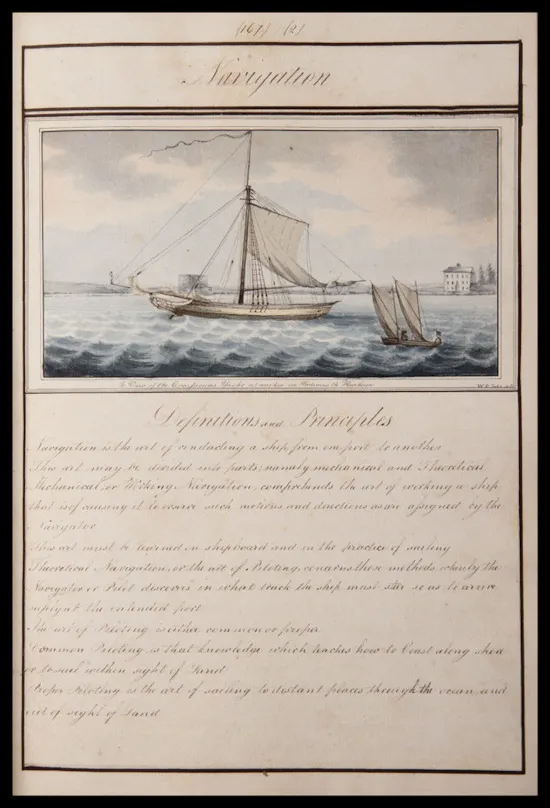 (167) (2)
Navigation
A View of the Yacht at anchor in Harbour
Definitions and Principles
Navigation is the art of conducting a ship from one port to another
This art may be divided into parts; namely mechanical and Theoretical
Mechanical or Working Navigation, comprehends the art of working a ship
that is of causing it to observe such motions and directions as are assigned by the
Navigator
This art must be learned on shipboard and in the practice of sailing
Theoretical Navigation, or the art of Piloting, concerns those methods whereby the
Navigator or Pilot discovers in what track the ship must steer so as to arrive
safely at the intended port
The art of Piloting is either common or proper
Common Piloting is that knowledge which teaches how to Coast along shore
or to sail within sight of Land
Proper Piloting is the art of sailing to distant places through the ocean and
out of sight of Land